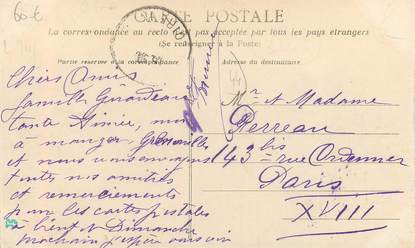 60 €
CARTE POSTALE
La correspondance au recto n'est pas acceptée par tous les pays étrangers
(Se renseigner à la Poste)
Partie réservée à la correspondance
Adresse du destinataire
Chers Amis
famille
tante
à manger, Grenouilles
et nous vous envoyons
toutes nos amitiés
et remerciements
pour les cartes postales
à bientôt Dimanche
prochain j'espère
Mr et Madame
Perreau
143 bis rue Ordener
Paris
XVIII